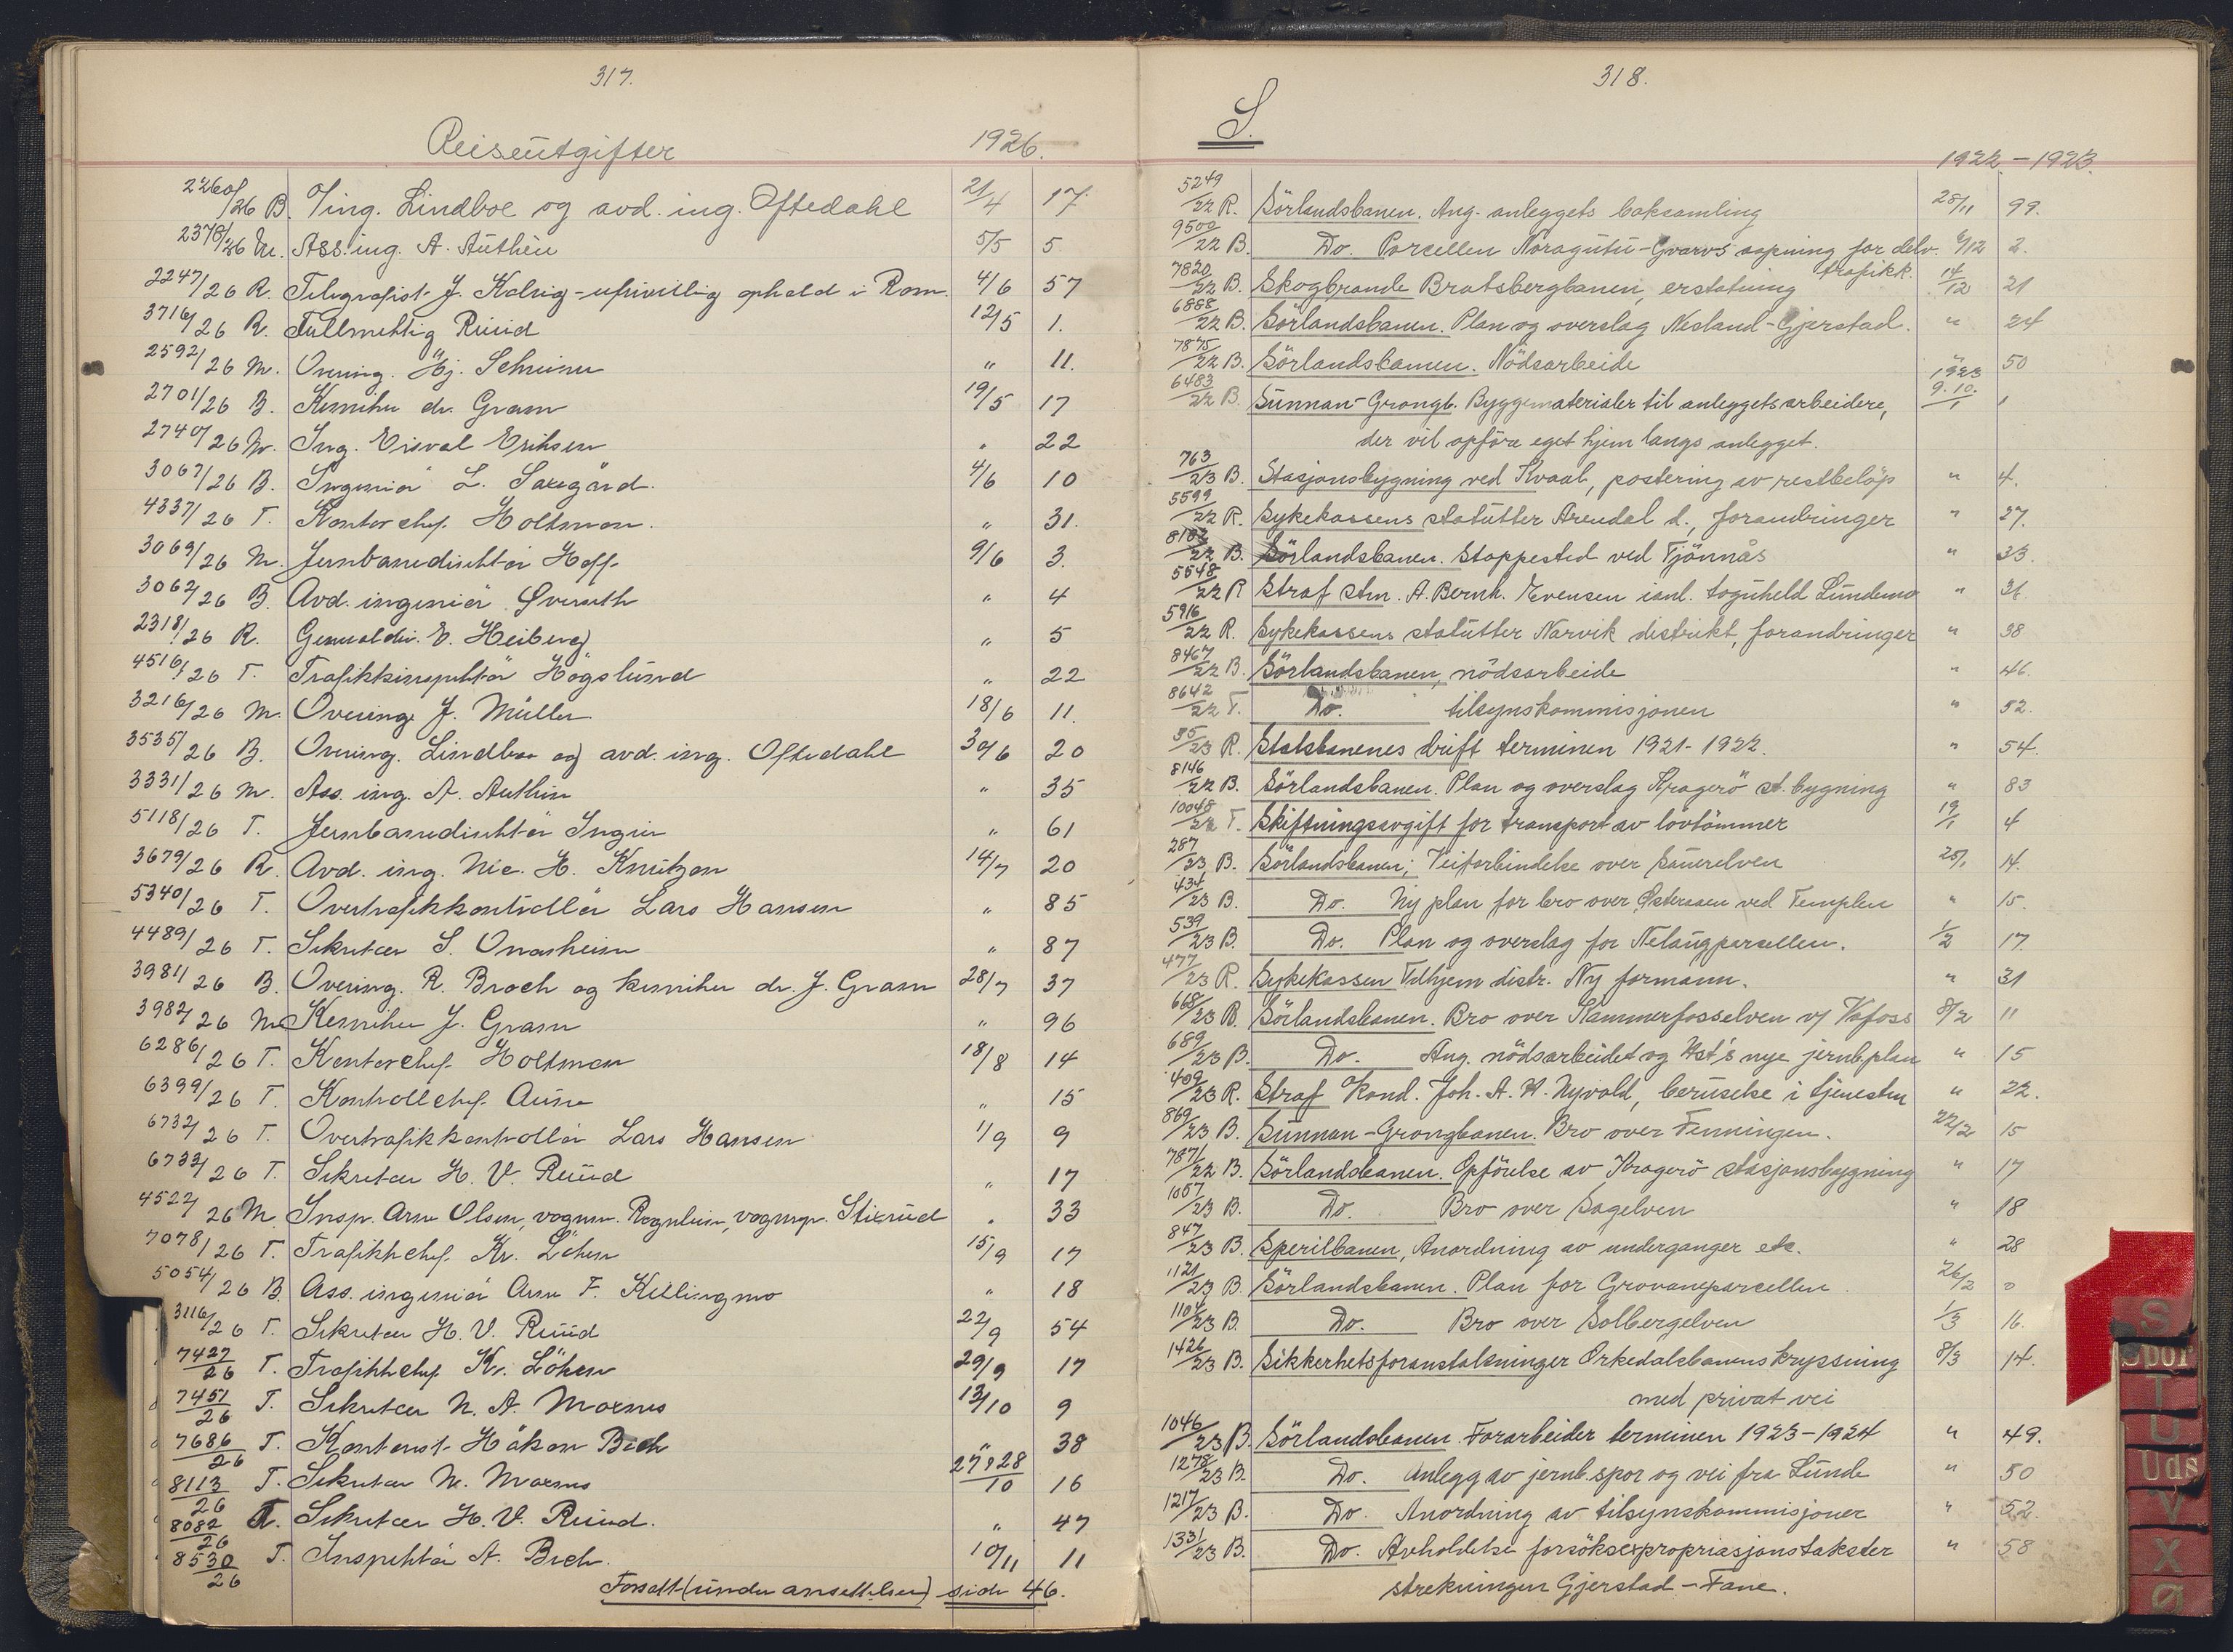 317.
Reiseutgifter 1926.
2260/26 B. O/ing. Lindboe og avd. ing. Oftedahl 21/4 17.
2378/26 M. Ass. ing. A. Authén 5/5 5
2247/26 R. Telegrafist J. Kolrig - ufrivillig ophold i Rom. 4/6 57
3716/26 R. Fullmektig Ruud 12/5 1.
2592/26 M. Overing. Hj. Schreiner " 11.
2701/26 B. Kemiker dr. Gram 19/5 17
2740/26 M. Ing. Eisval Eriksen " 22
3067/26 B. Ingeniør L. Saxegård. 4/6 10
4337/26 T. Kontorchef Holtman. " 31.
3069/26 M. Jernbanedirektør Hoff 9/6 3.
3062/26 B. Avd. ingeniør Øverseth " 4
2318/26 R. Generaldir. E. Heiberg " 5
4516/26 T. Trafikkinspektör Högslund " 22
3216/26 M. Overing. J. Müller 18/6 11.
3535/26 B. Overing. Lindboe og avd. ing. Oftedahl 30/6 20
3331/26 M. Ass. ing. A. Authén " 35
5118/26 T. Jernbanedirektör Ingier " 61
3679/26 R. Avd. ing. Nic. H. Knutzon 14/7 20
5340/26 T. Overtrafikkontrollör Lars Hansen " 85
4489/26 T. Sekretær S. Onarheim " 87
3981/26 B. Overing. R. Broch og kemiker dr. J. Gram 28/7 37
3982/26 M. Kemiker J. Gram " 96
6286/26 T. Kontorchef Holtman 18/8 14
6399/26 T. Kontrollchef Aune " 15
6732/26 T. Overtrafikkontrollör Lars Hansen 1/9 9
6733/26 T. Sekretær H. V. Ruud " 17
4522/26 M. Insp. Arne Olsen, vognm. Rognlien, vognopr. Stixrud " 33
7078/26 T. Trafikkchef Kr. Löken 15/9 17
5054/26 B. Ass. ingeniör Arne F. Killingmo " 18
3116/26 T. Sekretær H. V. Ruud 22/9 54
7427/26 T. Trafikkchef Kr. Löken 29/9 17
7451/26 T. Sekretær N. A. Moxnes 13/10 9
7686/26 T. Kontorist Håkon Bech " 38
8113/26 T. Sekretær N. Moxnes 27 & 28/10 16
8082/26 T. Sekretær H. V. Ruud. " 47
8530/26 T. Inspektör A. Bech. 10/11 11
Forsatt (under ansettelser) side 46.
318.
S.
1922 - 1923.
5249/22 R. Sörlandsbanen. Ang. anleggets baksamling 28/11 99.
9500/22 B. Do. Parcellen Noragutu - Gvarvs åapning for delv. 6/12 2.
trafikk.
7820/22 B. Skogbrande Bratsbergbanen, erstatning 14/12 21
6888/22 B. Sörlandsbanen. Plan og overslag Nesland - Gjerstad. " 24
7875/22 B. Sörlandsbanen. Nödsarbeide " 50
1923
6483/22 B. Sunnan-Grongb. Byggematerialer til anleggets arbeidere, 9. 10./1 1
der vil opföre eget hjem langs anlegget.
763/23 B. Stasjonsbygning ved Kvaal, postering av restbelöp " 4.
5599/22 R. Sykekassens statutter Arendal d., forandringer " 27.
8182/22 B. Sörlandsbanen. Stoppested ved Tjönnås " 33.
5548/22 R Straf stm. A. Bernh. Evensen i anl. toguheld Lundemo " 36
5916/22 R. Sykekassens statutter Narvik distrikt, forandringer " 38
8467/22 B. Sörlandsbanen, nödsarbeide " 46.
8642/22 T. Do. tilsynskommisjonen " 52.
35/23 R. Statsbanenes drift terminen 1921-1922. " 54.
8146/22 B. Sörlandsbanen. Plan og overslag Kragerö st. bygning " 83
10048/22 T. Skiftningsavgift for transport av lövtömmer 19/1 4
287/23 B. Sörlandsbanen; Veiforbindelse over Sauerelven 25/1 14.
434/23 B. Do. Ny plan for bro over Østeraaen ved Templen " 15.
539/23 B. Do. Plan og overslag for Nelaugparsellen. 1/2 17.
477/23 R. Sykekassen Tdhjem distr. Ny formann. " 31
668/23 B. Sörlandsbanen. Bro over Kammerfosselven v/ Vafoss 8/2 11
689/23 B. Do. Ang. nödsarbeidet og Hst's nye jernb.plan " 15
409/23 R. Straf Kond. Joh. A. H. Nyvold, beruselse i tjenesten " 22.
869/23 B. Sunnan-Grongbanen. Bro over Fenningen. 22/2 15
7871/22 B. Sörlandsbanen. Opförelse av Kragerö stasjonsbygning " 17
1007/23 B. Do. Bro over Sagelven " 18
847/23 B. Sperilbanen, Anordning av underganger etc. " 28
1121/23 B. Sörlandsbanen. Plan for Grovaneparcellen 26/2 0
1104/23 B. Do. Bro over Solbergelven 1/3 16.
1426/23 B. Sikkerhetsforanstaltninger Orkedalsbanens kryssning 8/3 14.
med privat vei
1046/23 B. Sörlandsbanen. Forarbeider terminen 1923-1924 " 49.
1278/23 B. Do. Anlegg av jernb.spor og vei fra Lunde " 50
1217/23 B. Do. Anordning av tilsynskommisjoner " 52.
1331/23 B. Do. Avholdelse forsöksexpropriasjonstakster " 58
strekningen Gjerstad - Fane.
S
Spor
T
U
Uds
V
X
Ø